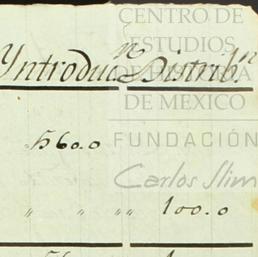 CENTRO DE
ESTUDIOS
Yntroducn Distribn
DE MEXICO
FUNDACIÓN
560.0
Carlos Slim
" " "" 100.0